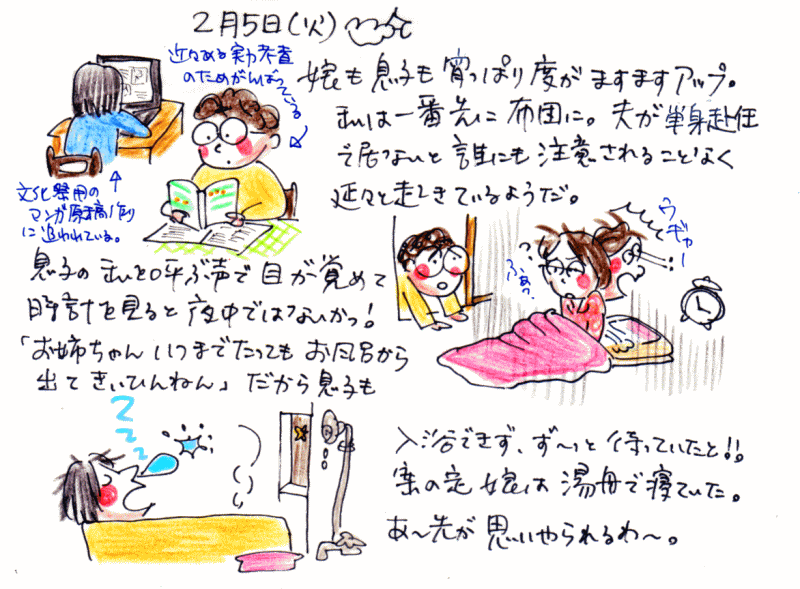 2月5日(火)
近々ある実力考査
のためがんばっている
娘も息子も宵っぱり度がますますアップ。
私は一番先に布団に。夫が単身赴任
で居ないと誰にも注意されることなく
延々と起きているようだ。
文化祭用の
マンガ原稿作り
に追われている。
息子の私を呼ぶ声で目が覚めて
時計を見ると夜中ではないかっ!
「お姉ちゃんいつまでたってもお風呂から
出てきいひんねん」だから息子も
ふぁっ
ウギャー
入浴できず、ず〜っと待っていたと!!
案の定娘は湯舟で寝ていた。
あ〜先が思いやられるわ〜。
zzz